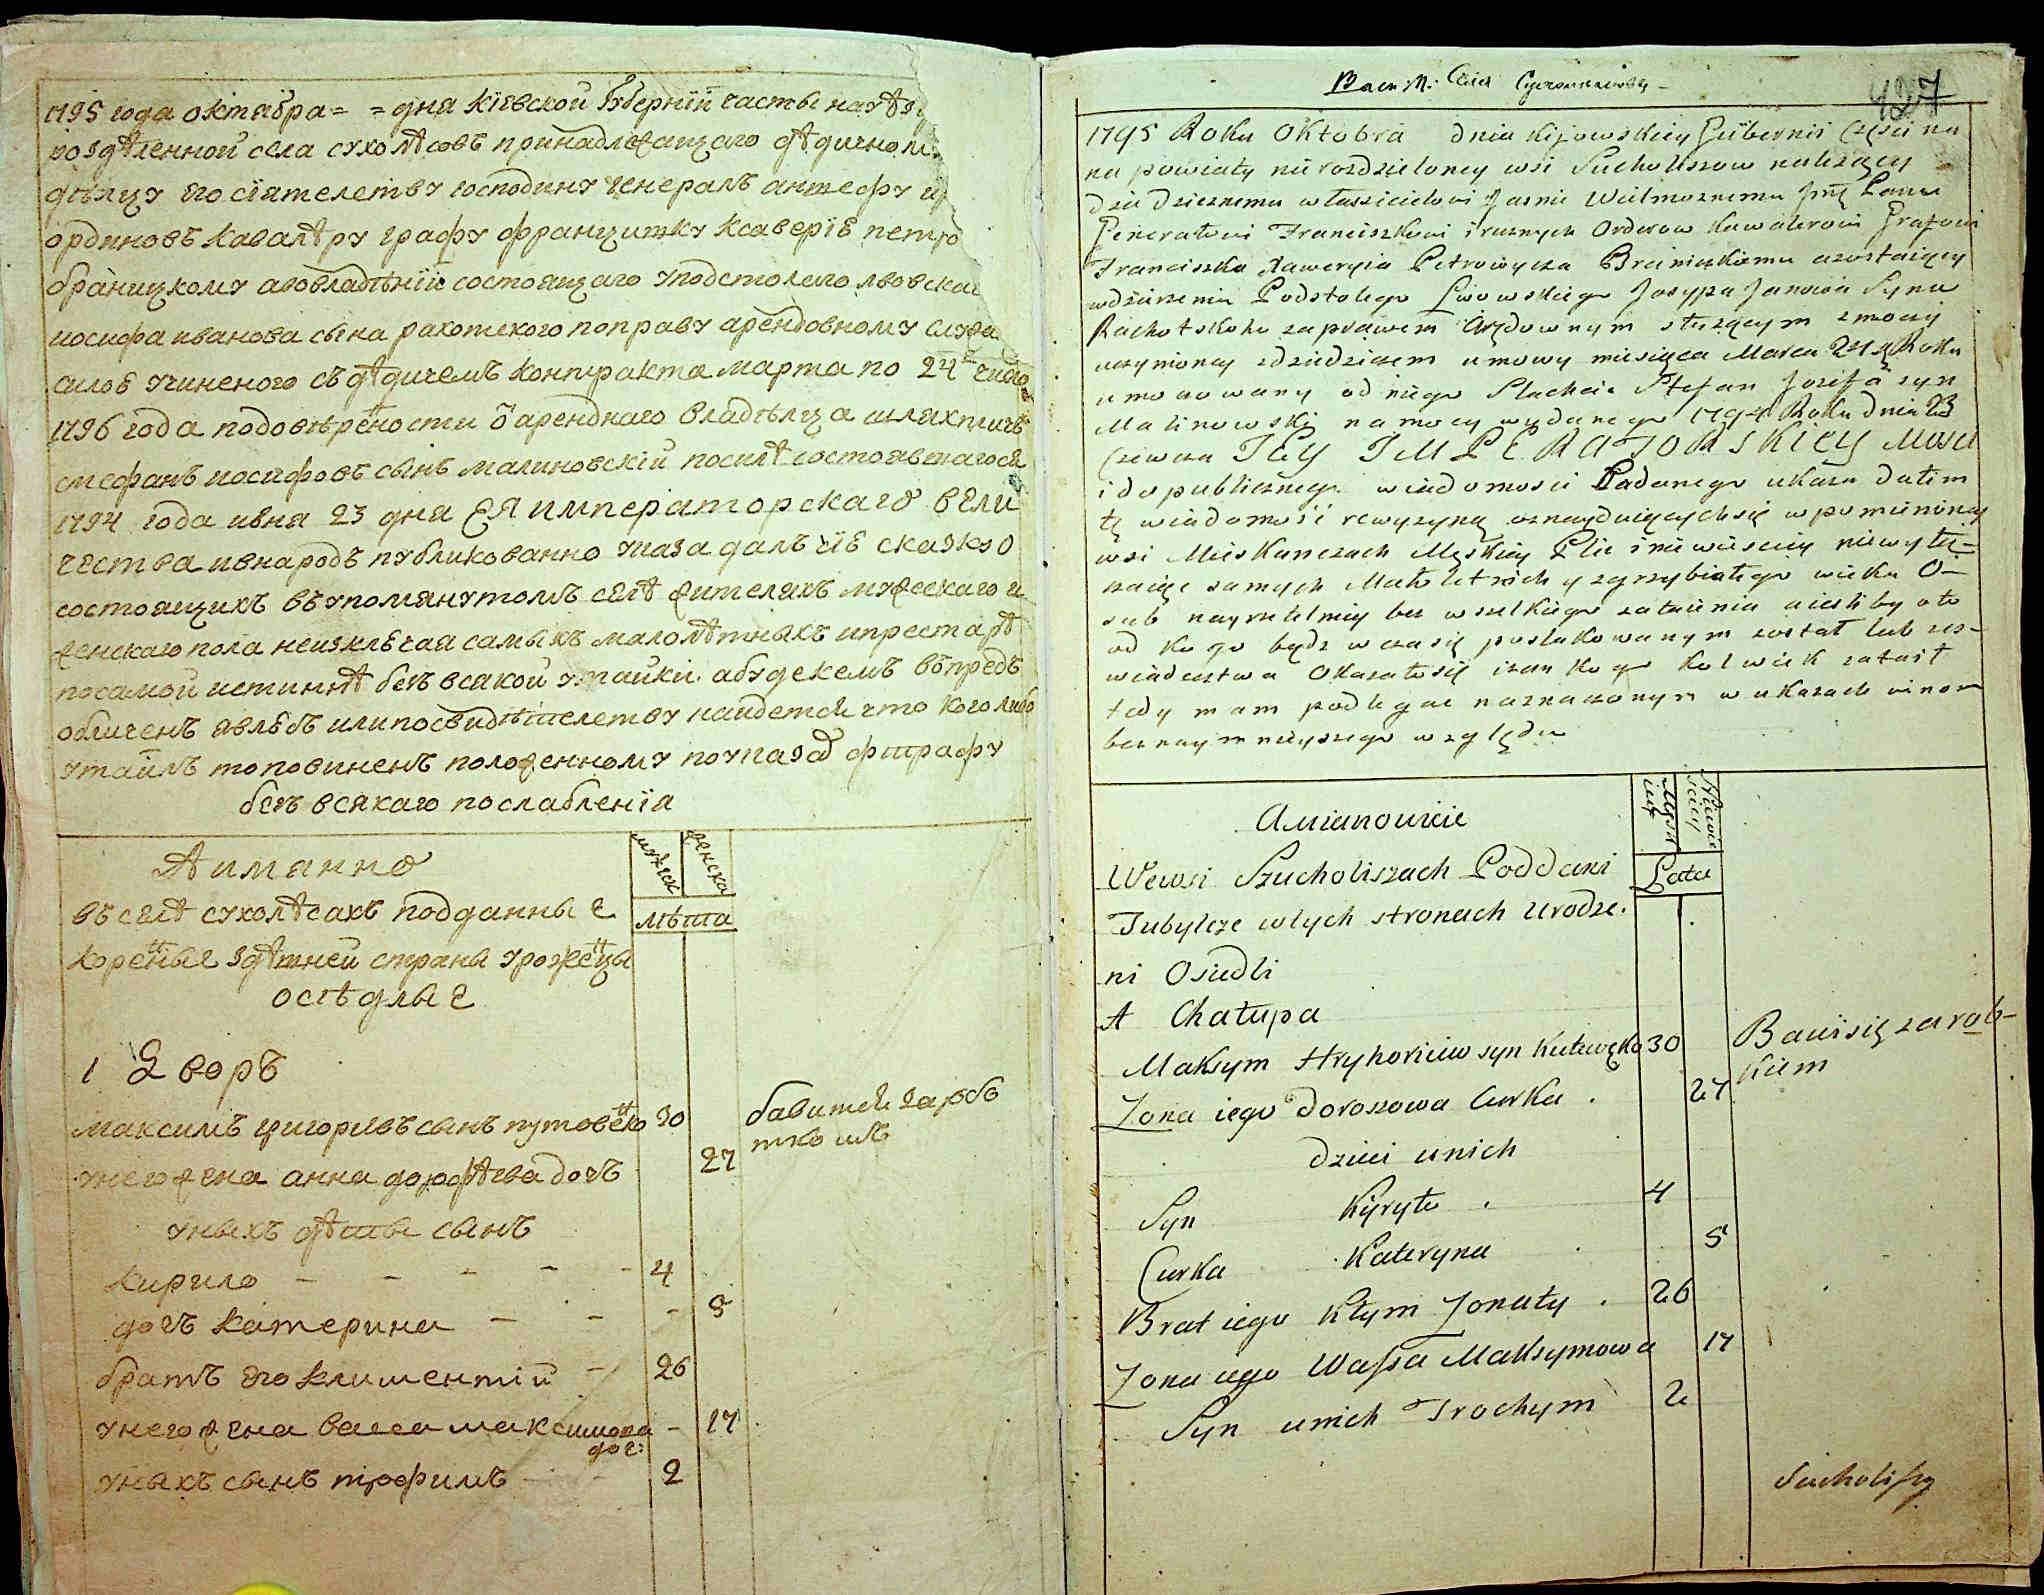 1795 года октября = = дня кіевской Губерніи часты на уѣз
роздѣленной села сухолѣсовъ принадлежащаго дѣдичном
дѣлцу его сіятелству господину генералъ аншефу и
ординовъ кавалѣру графу францишку ксаверіе петро
браницкому а во владѣніи состоящаго у подстолего лвовска
иосифа иванова сына рахотского по праву арендовному
силое учиненого съ дѣдичемъ контракта марта по 24 число
1796 года по довѣрености ѿ аренднаго владѣлца шляхтичъ
стефанъ иосифовъ сынъ малиновскій по силѣ состоявшагося
1794 года июня 23 дня ЕЯ императорскаго вели
чества и в народъ публикованно указа далъ сіе сказкоо
состоящихъ въ упомянутомъ селѣ жителяхъ мужескаго и
женскаго пола не изключая самыхъ малолѣтныхъ и престарѣ
по самой истиннѣ безъ всякой утайки а буде кемъ въпредъ
обличенъ явлюсь или по свидѣтелству найдется что кого либо
утаилъ то повиненъ положенному по указаѡ штрафу
безъ всякаго послабленія
А имянно
мужеск женска
лѣта
въ селѣ сухолѣсахъ подданные
кореные здѣшней страны уроженцы
осѣдлые
1 Дворъ
максимъ григориевъ сынъ путовенко 30 бавится заробо
ткомъ
у него жена анна дорофѣева дочь 27
у ныхъ дѣты сынъ
кирило - - - - - 4
дочь катерина - - - 5
братъ его климентій - 26
у него жена васса максимова - 17
доч:
у ныхъ сынъ трофимъ 2
427
1795 Roku Oktobra dnia kijowskiey Gubernii Części na
na powiaty nie rozdzieloney wsi Sucholissow należący
dziedzicznemu własicielowi Jasnie Wielmoznemu Jmę Panu
Generałowi Franciszkowi i roznych Orderow Kawalerowi Grafowi
Franciszku Xaweryia Petrowycza Branickiemu a zostaiący
w dzierzeniu Podstolego Lwowskiego Josypa Janowa Syna
Rachotskoho za prawem Arędownym służącym z mocy
uczynioney z dziedzicem umowy miesiąca Marca 24 g Roku
umocowany od niego Slachcic Stefan Jozefa syn
Malinowski na mocy wydanego 1794 Roku dnia 23
Czerwca JEY IMPERATORSKIEY Mosci
i do publiczney wiadomosci Podanego ukazu dałem
tę wiadomość rewyzyiną o znayduiących się w pomienioney
wsi Mieskancach Męskiey Płci i niewiesciey nie wyłą-
czaiąc samych Małoletnich y zgrzybiałego wieku O-
sub nayrzetelniey bez wszelkiego zataienia a iesliby oto
od kogo będz w czasię poszlakowanym został lub zes-
wiadectwa Okazałosię izem kogo kolwiek zataił
tedy mam podlegac naznaczonym w ukazach winom
bez naymnieyszego względu
A mianowicie
Męski iey Niewie sciey
Lata
We wsi Szucholiszach Poddani
Tubylcze w tych stronach urodze.
ni Osiedli
A Chałupa
Maksym Hryhoriiow syn Kutowęko 30 Bawi się zarab-
kiem
Zona iego Doroszowa Curka . 27
dzieci u nich
Syn Kyryło . 4
Curka Kateryna 5
Brat iego Kłym Zonaty . 26
Zona iego Wassa Maksymowa 17
Syn u nich Trochym 2
Sucholissy